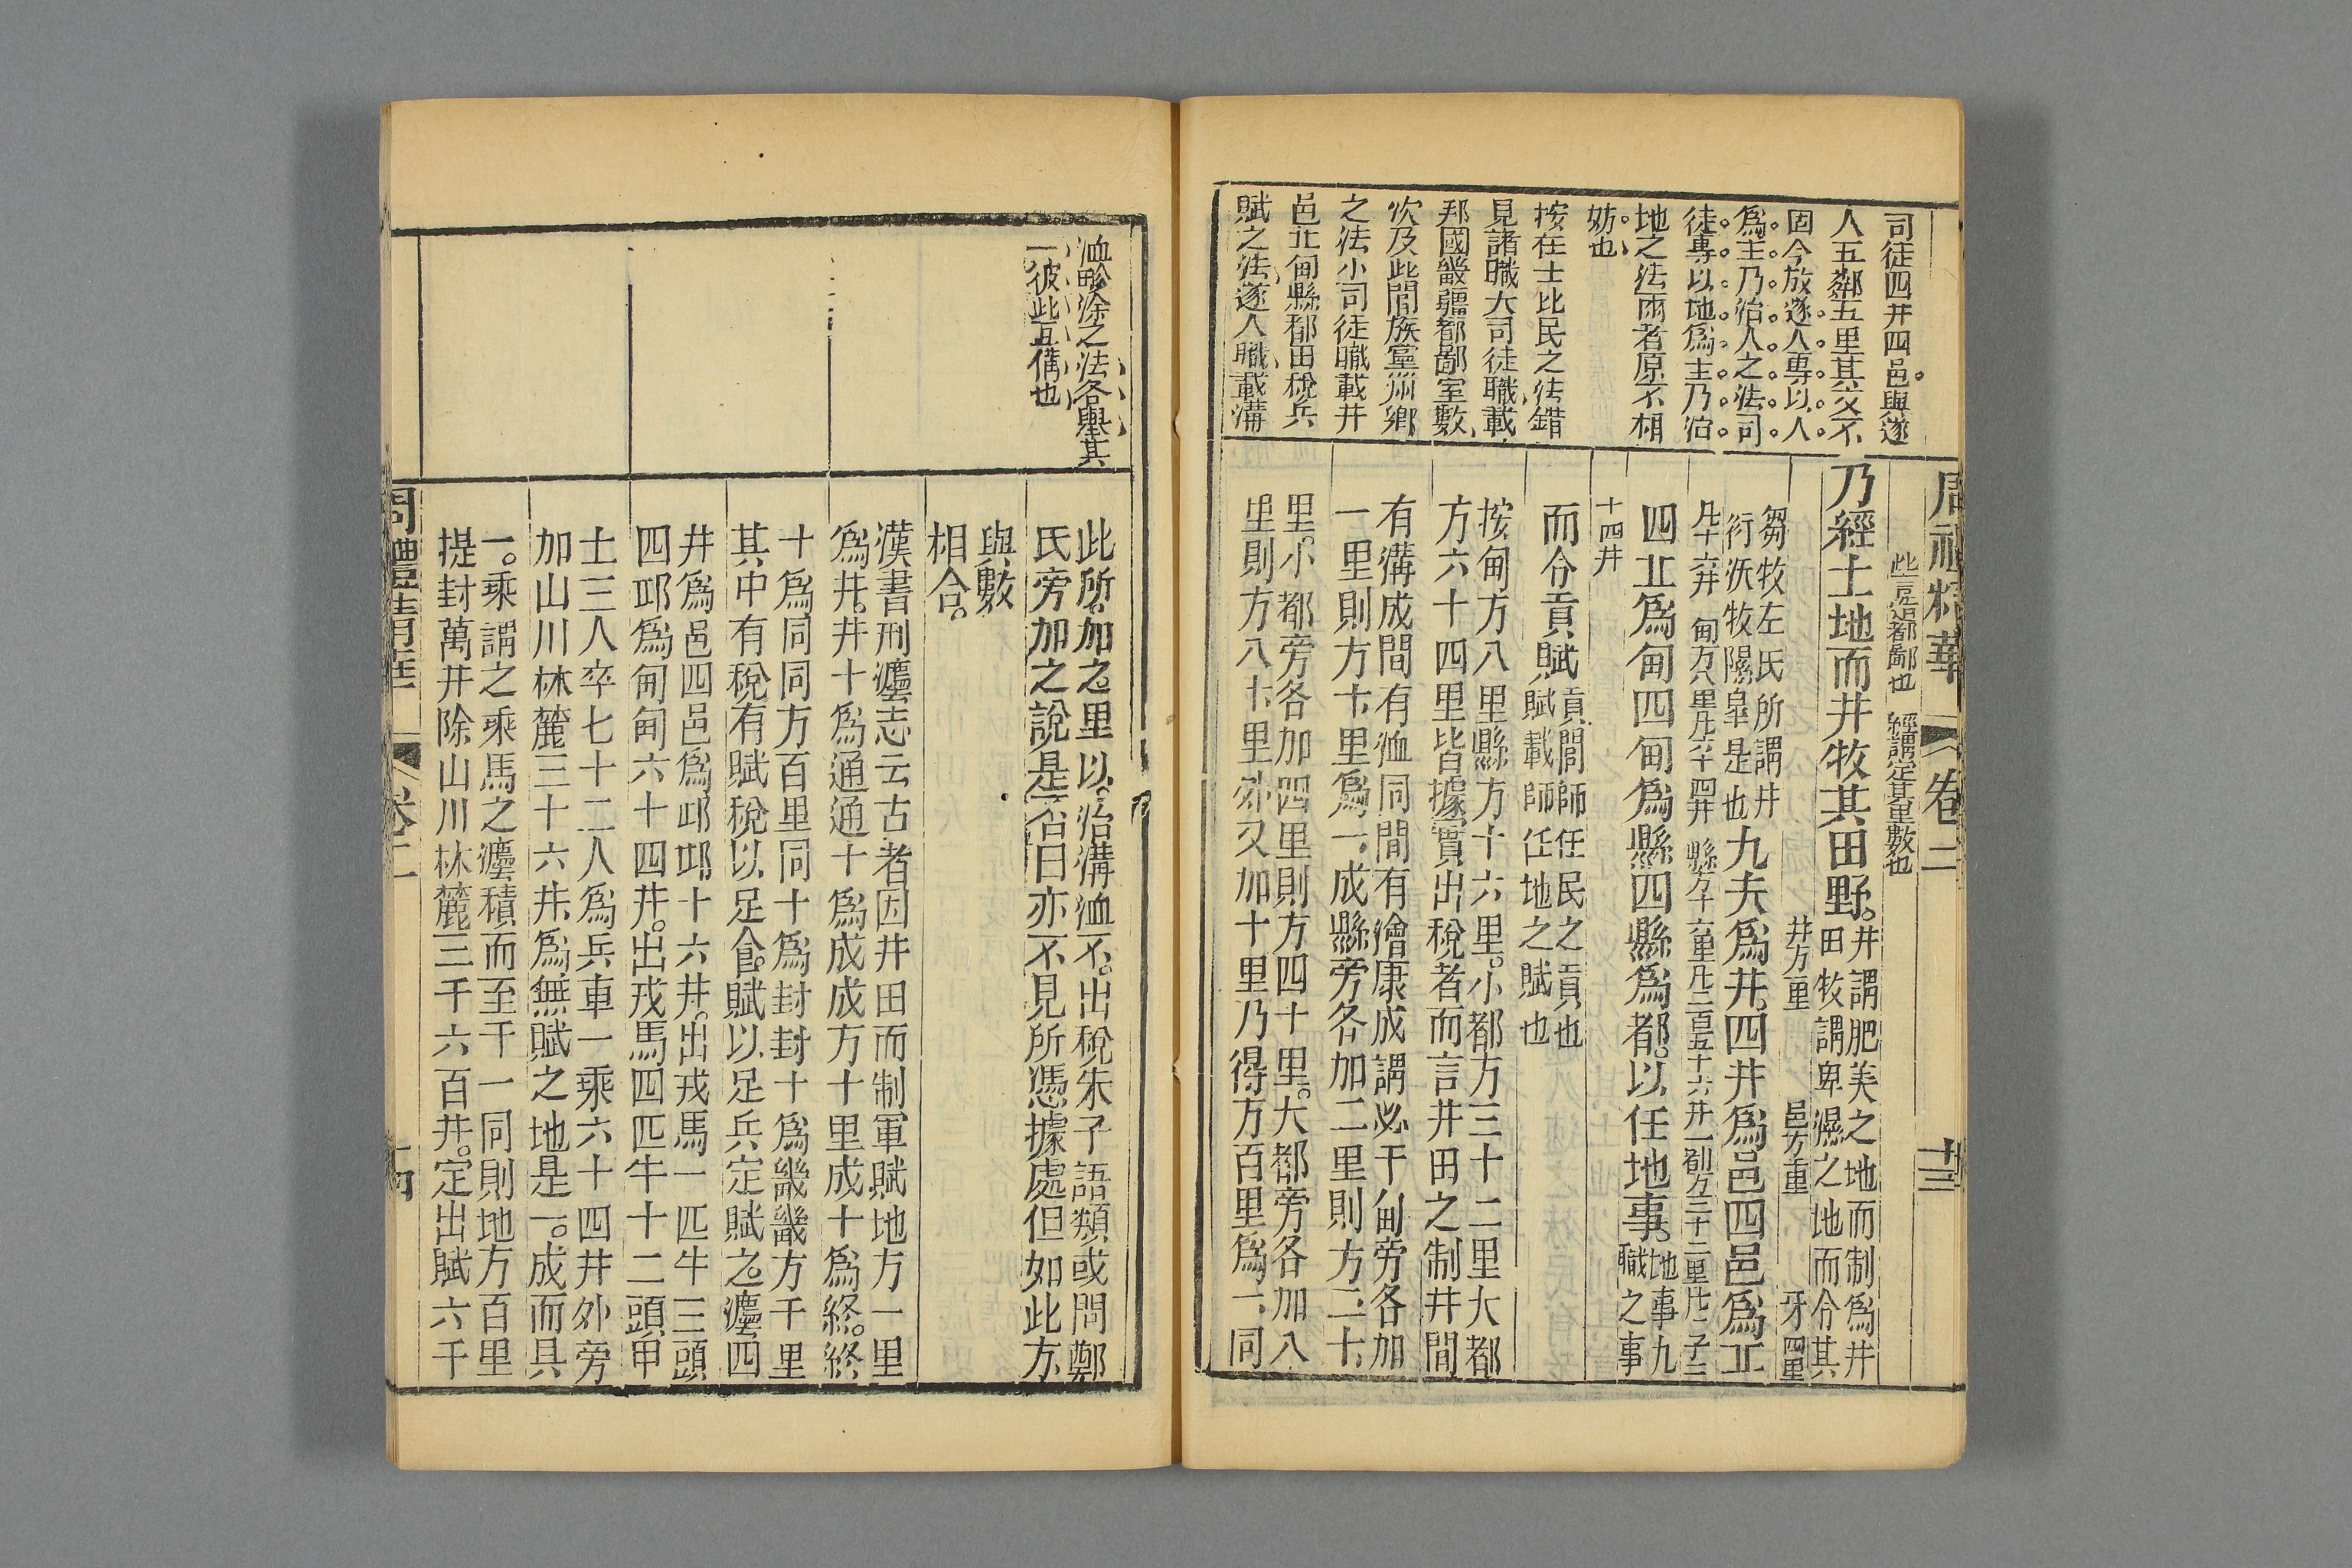 周禮精華
卷二
十三
司徒四井四邑與遂
人五鄰五里其文不
同今放遂人專以人
爲主乃治人之法司
徒專以地爲主乃治
地之法兩者原不相
妨也
按在士比民之法錯
見諸職大司徒職載
邦國畿疆都鄙室數
次及此閭族黨州鄉
之法小司徒職載井
邑丘甸縣都田稅兵
賦之法遂人職載溝
此言造都鄙也 經謂定其里數也
乃經土地而井牧其田野
井謂肥美之地而制爲井
田牧謂卑濕之地而令其
芻牧左氏所謂井
衍沃牧隰皐是也
井方一里 邑方二里 丘四里
九夫爲井四井爲邑四邑爲丘
凡十六井 甸方八里凡六十四井 縣方十六里凡二百五十六井 都方三十二里凡一千二
四丘爲甸四甸爲縣四縣爲都以任地事
地事九
職之事
十四井
而令貢賦
貢閭師任民之貢也
賦載師任地之賦也
按甸方八里縣方十六里小都方三十二里大都
方六十四里皆據實出稅者而言井田之制井間
有溝成間有洫同間有澮康成謂必于甸旁各加
一里則方十里爲一成縣旁各加二里則方二十
里小都旁各加四里則方四十里大都旁各加八
里則方八十里外又加十里乃得方百里爲一同
洫畛涂之法各舉其
一彼此互備也
此所加之里以治溝洫不出稅朱子語類或問鄭
氏旁加之說是否曰亦不見所憑據處但如此方
與數
相合
漢書刑灋志云古者因井田而制軍賦地方一里
爲井井十爲通通十爲成成方十里成十爲終終
十爲同同方百里同十爲封封十爲畿畿方千里
其中有稅有賦稅以足食賦以足兵定賦之灋四
井爲邑四邑爲邱邱十六井出戎馬一匹牛三頭
四邱爲甸甸六十四井出戎馬四匹牛十二頭甲
士三人卒七十二人爲兵車一乘六十四井外旁
加山川林麓三十六井爲無賦之地是一成而具
一乘謂之乘馬之灋積而至于一同則地方百里
提封萬井除山川林麓三千六百井定出賦六千
周禮精華
卷二
十四